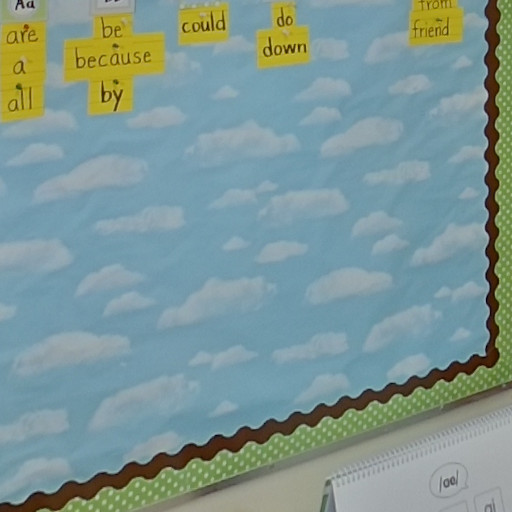 Aa
are
a
all
be
because
by
could
do
down
from
friend
/oo/